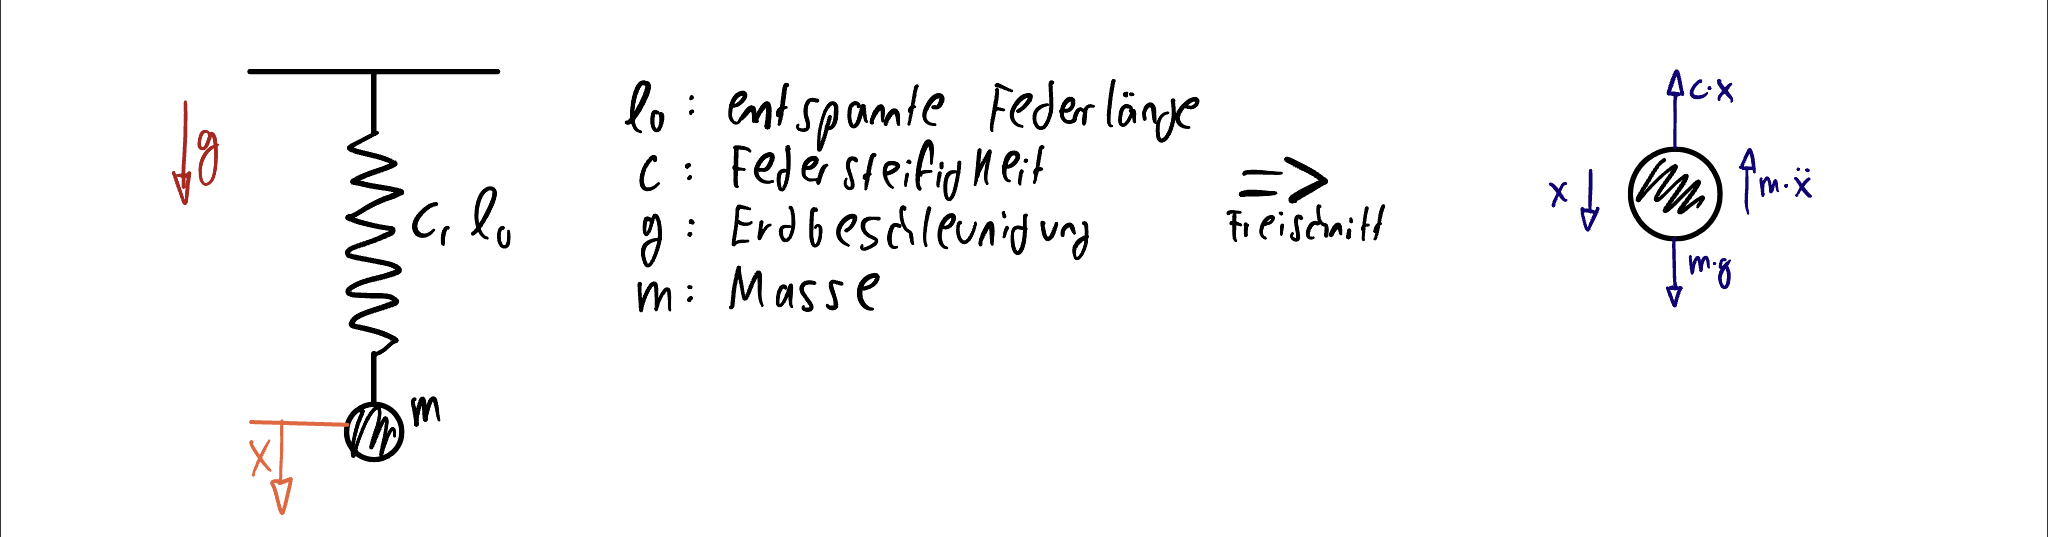 g
c, l₀
m
x
l₀ : entspannte Federlänge
c : Federsteifigkeit
g : Erdbeschleunigung
m : Masse
=>
Freischnitt
c·x
x
m·ẍ
m·g